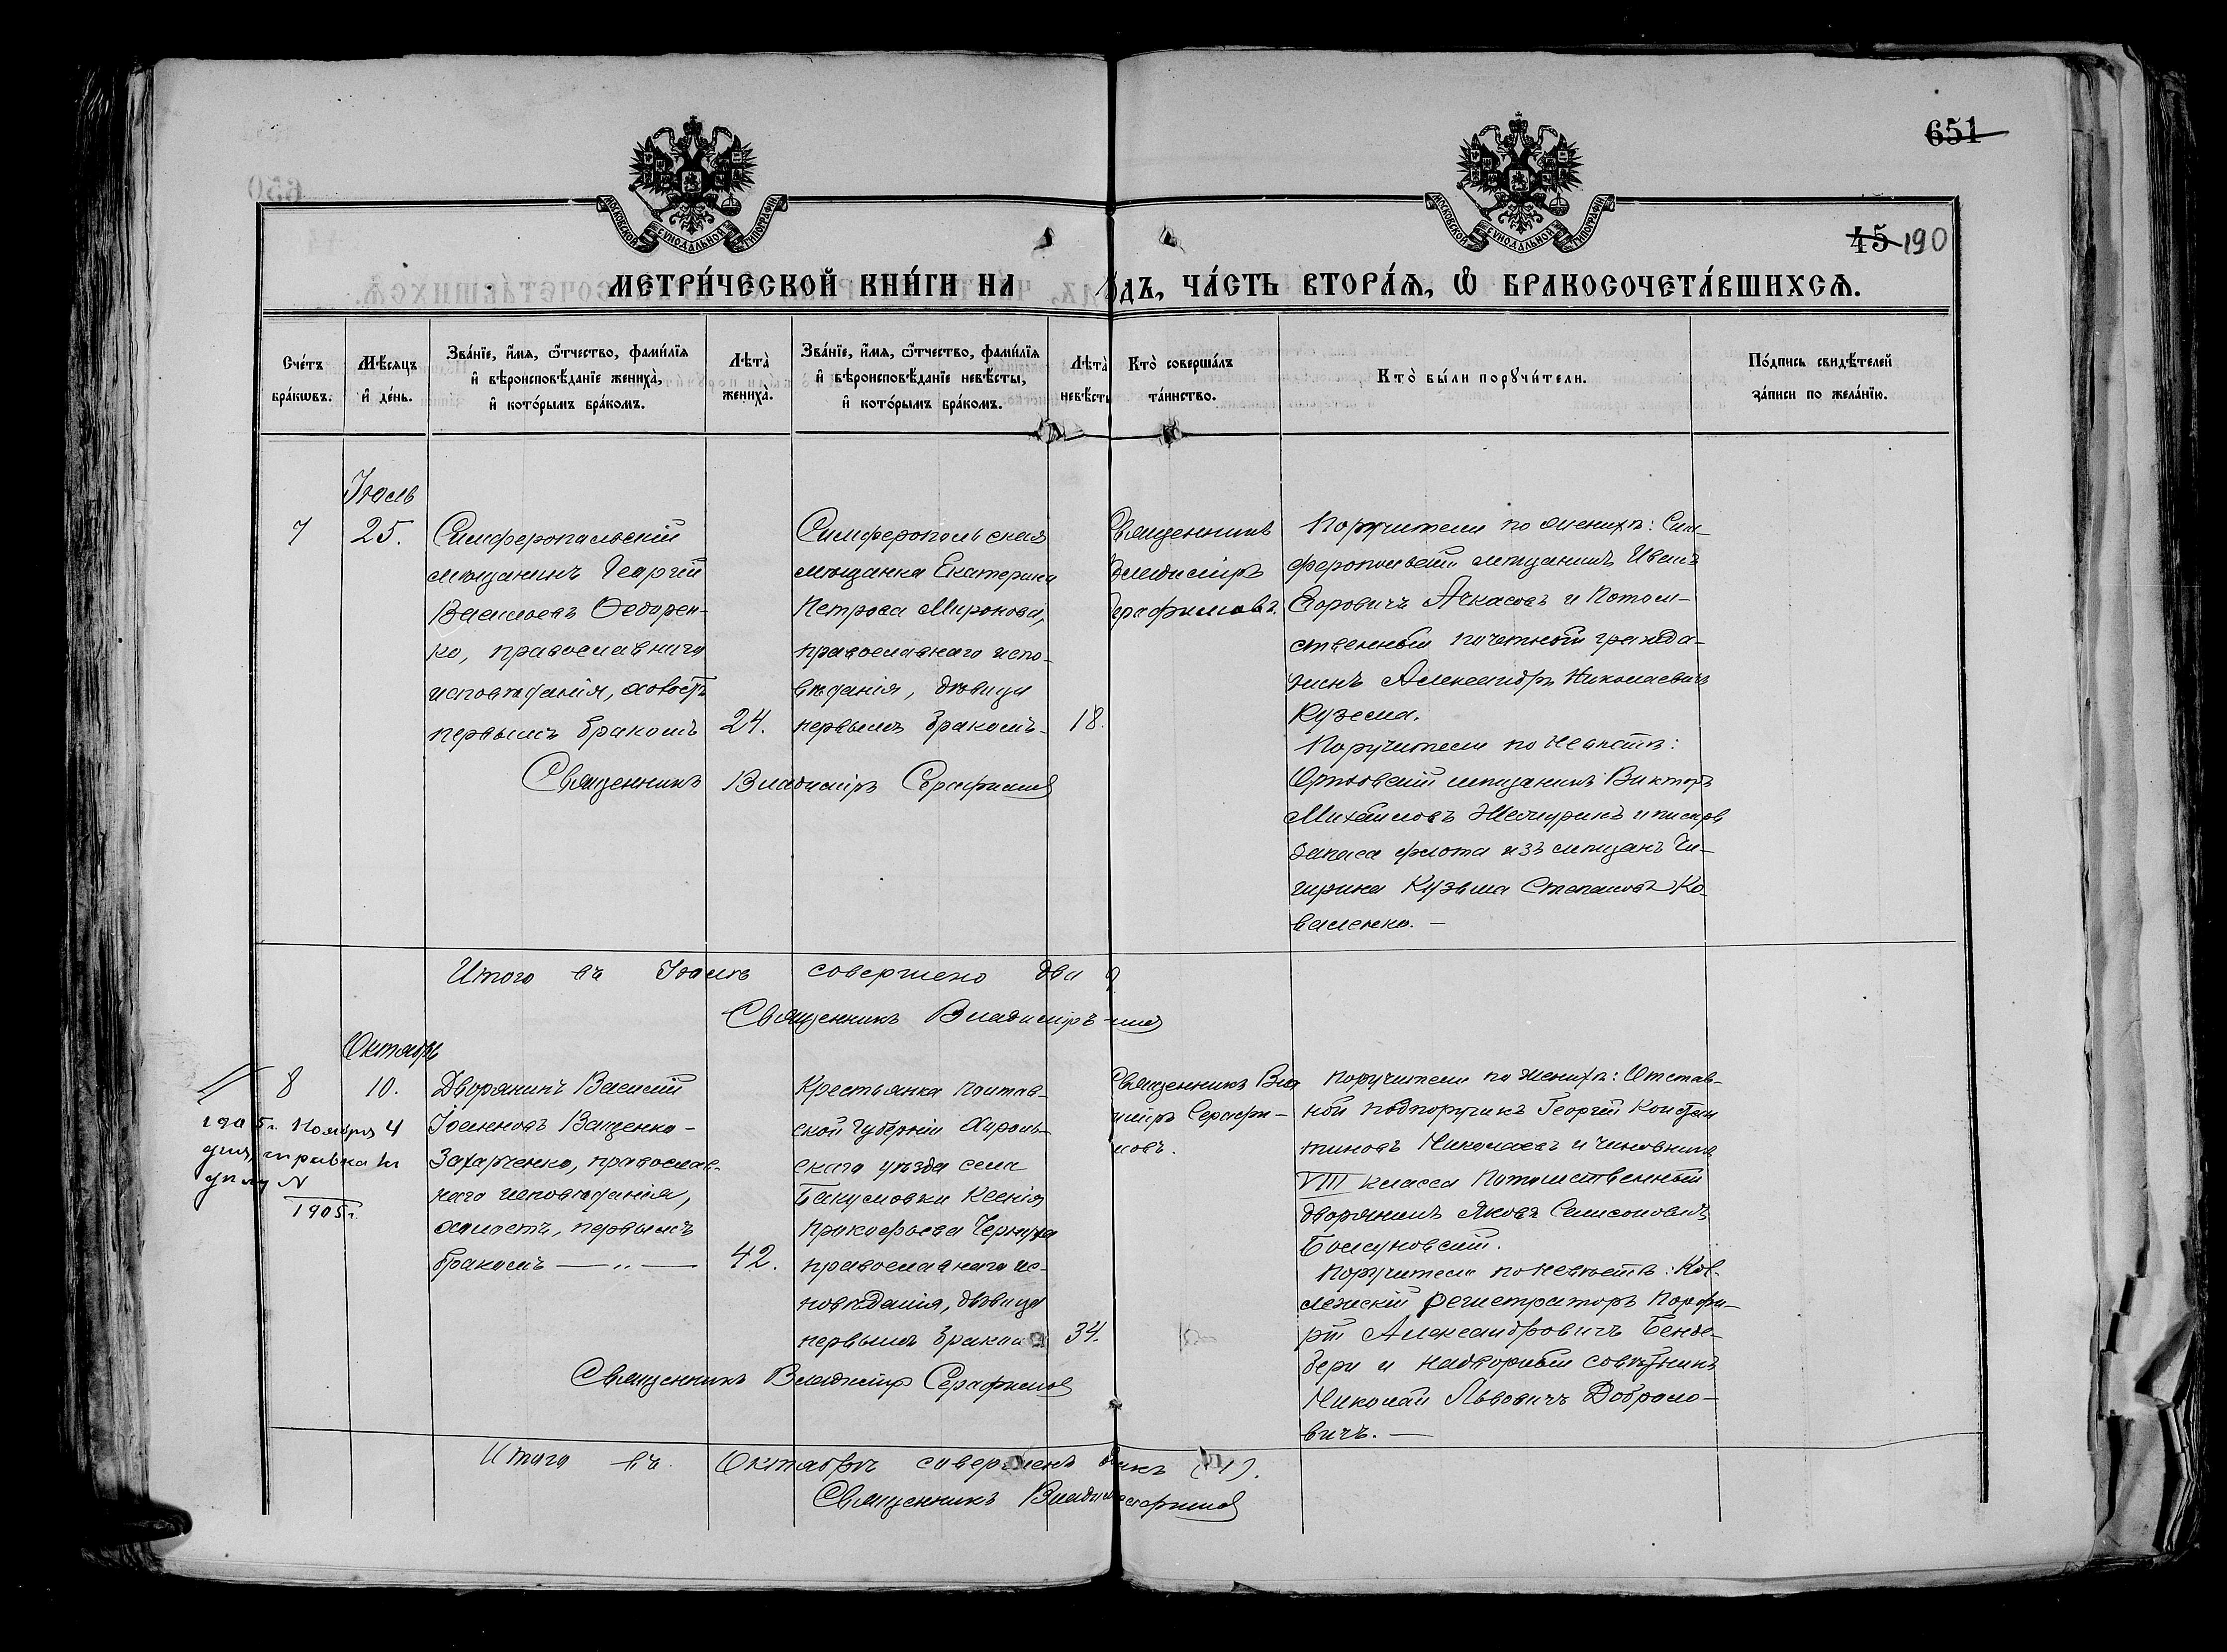 651
45 190
МОСКОВСКОЙ СУНОДАЛЬНОЙ ТИПОГРАФІИ
МОСКОВСКОЙ СУНОДАЛЬНОЙ ТИПОГРАФІИ
МЕТРИ́ЧЕСКОЙ КНИ́ГИ НА го́дъ, ЧА́СТЬ ВТОРА́Ѧ, Ѿ БРАКОСОЧЕТА́ВШИХСѦ.
Сче́тъ бра́кѡвъ.
Мѣ́сѧцъ и҆ де́нь.
Зва́нїе, и҆́мѧ, ѻ҆́тчество, фамі́лїѧ и҆ вѣроисповѣ́данїе жениха̀, и҆ кото́рымъ бра́комъ.
Лѣта̀ жениха̀.
Зва́нїе, и҆́мѧ, ѻ҆́тчество, фамі́лїѧ и҆ вѣроисповѣ́данїе невѣ́сты, и҆ кото́рымъ бра́комъ.
Лѣта̀ невѣ́сты
Кто̀ соверша́лъ та́инство.
Кто̀ бы́ли порꙋчи́тели.
По́дпись свидѣ́телей за́писи по жела́нїю.
Іюль
7
25.
Симферопольскій
мѣщанинъ Георгій
Васильевъ Ѳедорен-
ко, православнаго
исповѣданія, холостъ
первымъ бракомъ
24.
Симферопольская
мѣщанка Екатерина
Петрова Миронова,
православнаго испо-
вѣданія, дѣвица
первымъ бракомъ
18.
Священникъ
Владиміръ
Серафимовъ.
Поручители по женихѣ: Сим-
феропольскій мѣщанинъ Иванъ
Егоровичъ Ачкасовъ и Потом-
ственный почетный гражда-
нинъ Александръ Николаевичъ
Кузема.
Поручители по невѣстѣ:
мѣщанинъ Викторъ
Михайловъ и писарь
запаса флота изъ мѣщанъ Чи-
гирина Кузьма Степановъ Ко-
валенко. —
Священникъ Владиміръ Серафимовъ
Итого въ Іюлѣ совершено два
Священникъ Владиміръ
Октябрь
8
10.
1905 г. Ноября 4
дня, справка къ
дѣлу №
1905 г.
Дворянинъ Василій
Іоанновъ Ващенко-
Захарченко, православ-
наго исповѣданія,
холостъ, первымъ
бракомъ — „ —
42.
Крестьянка Полтав-
ской губерніи Хороль-
скаго уѣзда села
Бакумовки Ксенія
Прокофьева Чернуха
православнаго ис-
повѣданія, дѣвица
первымъ бракомъ
34.
Священникъ Вла
диміръ Серафи-
мовъ.
Поручители по женихѣ: Отстав-
ной подпоручикъ Георгій Констан
тиновъ Николаевъ и чиновникъ
VIII класса Потомственный
дворянинъ Яковъ Самсоновичъ
Поручители по невѣстѣ: Кол-
лежскій регистраторъ Порфи-
рій Александровичъ Бенде-
бери и надворный совѣтникъ
Николай Львовичъ Доброло-
вичъ. —
Священникъ Владиміръ Серафимовъ
Итого въ Октябрѣ совершенъ одинъ (1).
Священникъ Владиміръ Серафимовъ